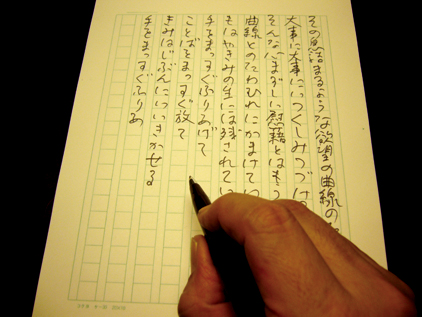 その息詰まるような欲望の曲線の
大事に大事にいつくしみつづけ
そんなごまかしに慰藉とはもう
曲線とのたわむれにかまけてい
もはやきみの生には残されてい
手をまっすぐふりあげて
ことばをまっすぐ放て
きみはじぶんにいいきかせる
手をまっすぐふりあ